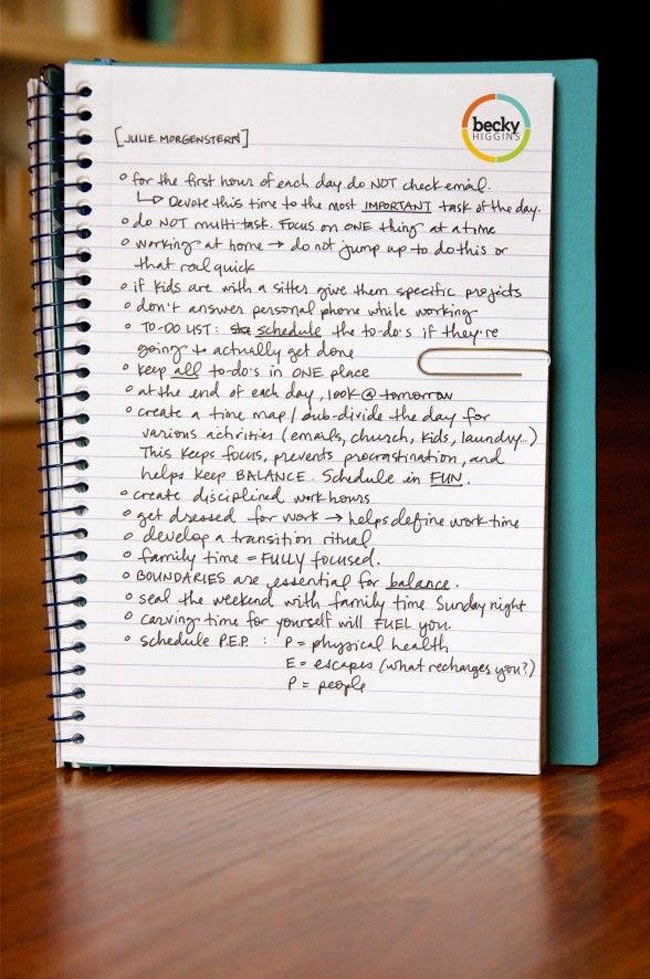 becky
HIGGINS
[JULIE MORGENSTERN]
for the first hour of each day do NOT check email.
Devote this time to the most IMPORTANT task of the day.
do NOT multi-task. Focus on ONE thing at a time
working at home → do not jump up to do this or
that real quick
if kids are with a sitter give them specific projects
don't answer personal phone while working
TO-DO LIST: schedule the to-do's if they're
going to actually get done
keep all to-do's in ONE place
at the end of each day, look @ tomorrow
create a time map / sub-divide the day for
various activities (emails, church, kids, laundry...)
This keeps focus, prevents procrastination, and
helps keep BALANCE. Schedule in FUN.
create disciplined work hours
get dressed for work → helps define work time
develop a transition ritual
family time = FULLY focused.
BOUNDARIES are essential for balance.
seal the weekend with family time Sunday night
carving time for yourself will FUEL you.
schedule P.E.P. : P = physical health
E = escapes (what recharges you?)
P = people